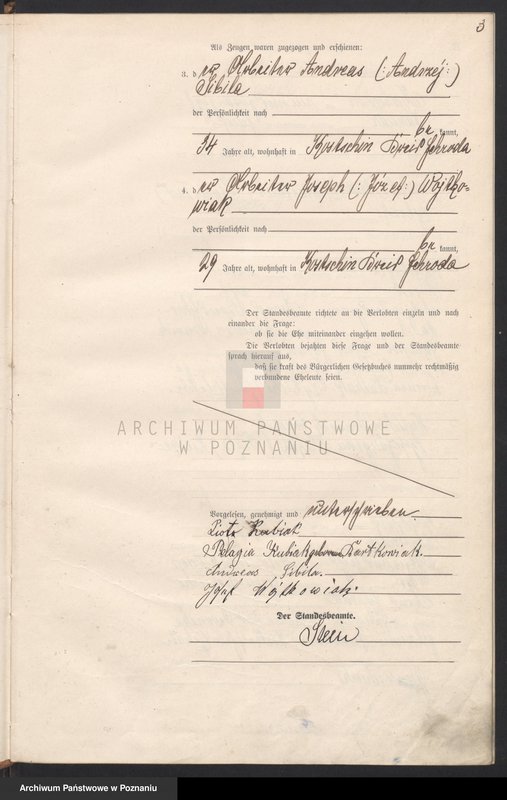 3
Als Zeugen waren zugezogen und erschienen:
3. der Arbeiter Andreas (: Andrzéj :)
Sibila
der Persönlichkeit nach
be kannt,
34 Jahre alt, wohnhaft in Kostschin Kreis Schroda
4. der Arbeiter Joseph (: Józef :) Wojtko-
wiak
der Persönlichkeit nach
be kannt,
29 Jahre alt, wohnhaft in Kostschin Kreis Schroda
Der Standesbeamte richtete an die Verlobten einzeln und nach
einander die Frage:
ob sie die Ehe miteinander eingehen wollen.
Die Verlobten bejahten diese Frage und der Standesbeamte
sprach hierauf aus,
daß sie kraft des Bürgerlichen Gesetzbuches nunmehr rechtmäßig
verbundene Eheleute seien.
ARCHIWUM PAŃSTWOWE
W POZNANIU
Vorgelesen, genehmigt und unterschrieben.
Piotr Kubiak
Pelagia Kubiak geborne Bartkowiak.
Andreas Sibila.
Józef Wojtkowiak.
Der Standesbeamte.
Stein
Archiwum Państwowe w Poznaniu